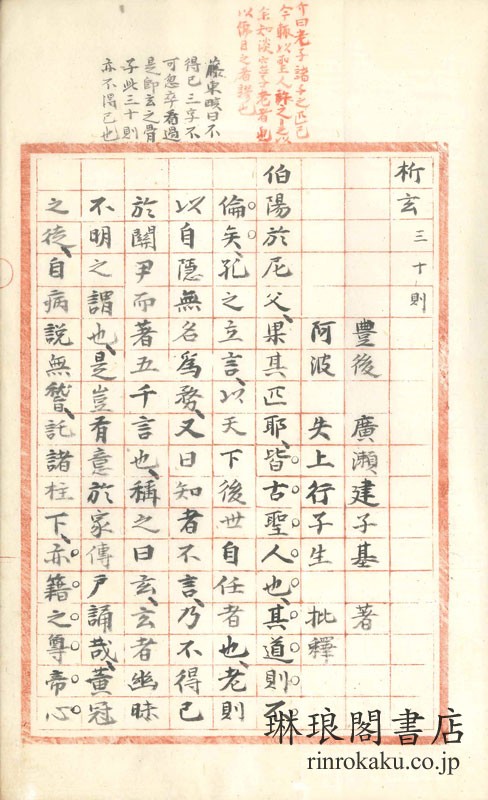 介曰老子諸子之匹已
今輙以聖人許之是以
余知淡窓學老者也
以儒目之者誤也
藤東畡曰不
得已三字不
可忽卒看過
是即玄之骨
子此三十則
亦不得已也
析玄 三十則
豐後 廣瀬建子基 著
阿波 失上行子生 批釋
伯陽於尼父、果其匹耶、皆古聖人也、其道則不
倫矣、孔之立言、以天下後世自任者也、老則
以自隱無名爲務、又曰知者不言、乃不得已
於關尹而著五千言也、稱之曰玄、玄者幽昧
不明之謂也、是豈有意於家傳戸誦哉、黄冠
之徒、自病説無稽、託諸柱下、亦籍之尊帝心
琳琅閣書店
rinrokaku.co.jp